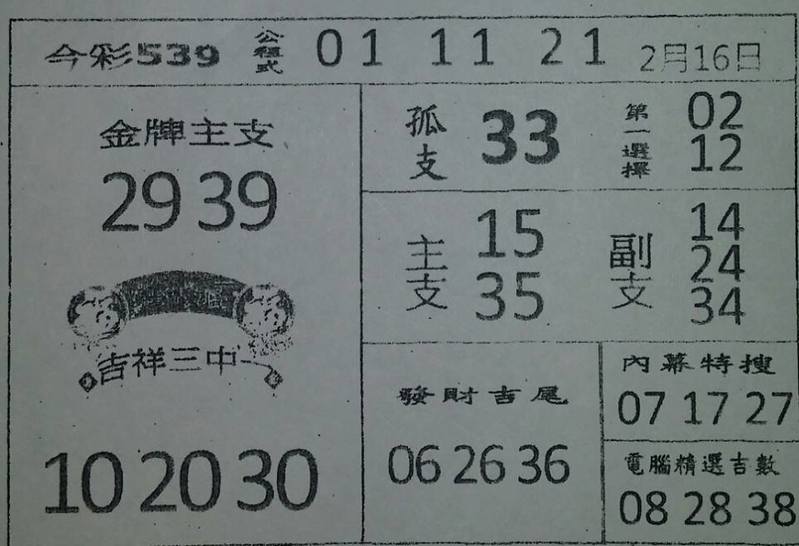 今彩539 公程式 01 11 21 2月16日
金牌主支
29 39
吉祥三中一
10 20 30
孤支 33
第一選擇 02 12
主支 15 35
副支 14 24 34
發財吉尾
06 26 36
內幕特搜
07 17 27
電腦精選吉數
08 28 38